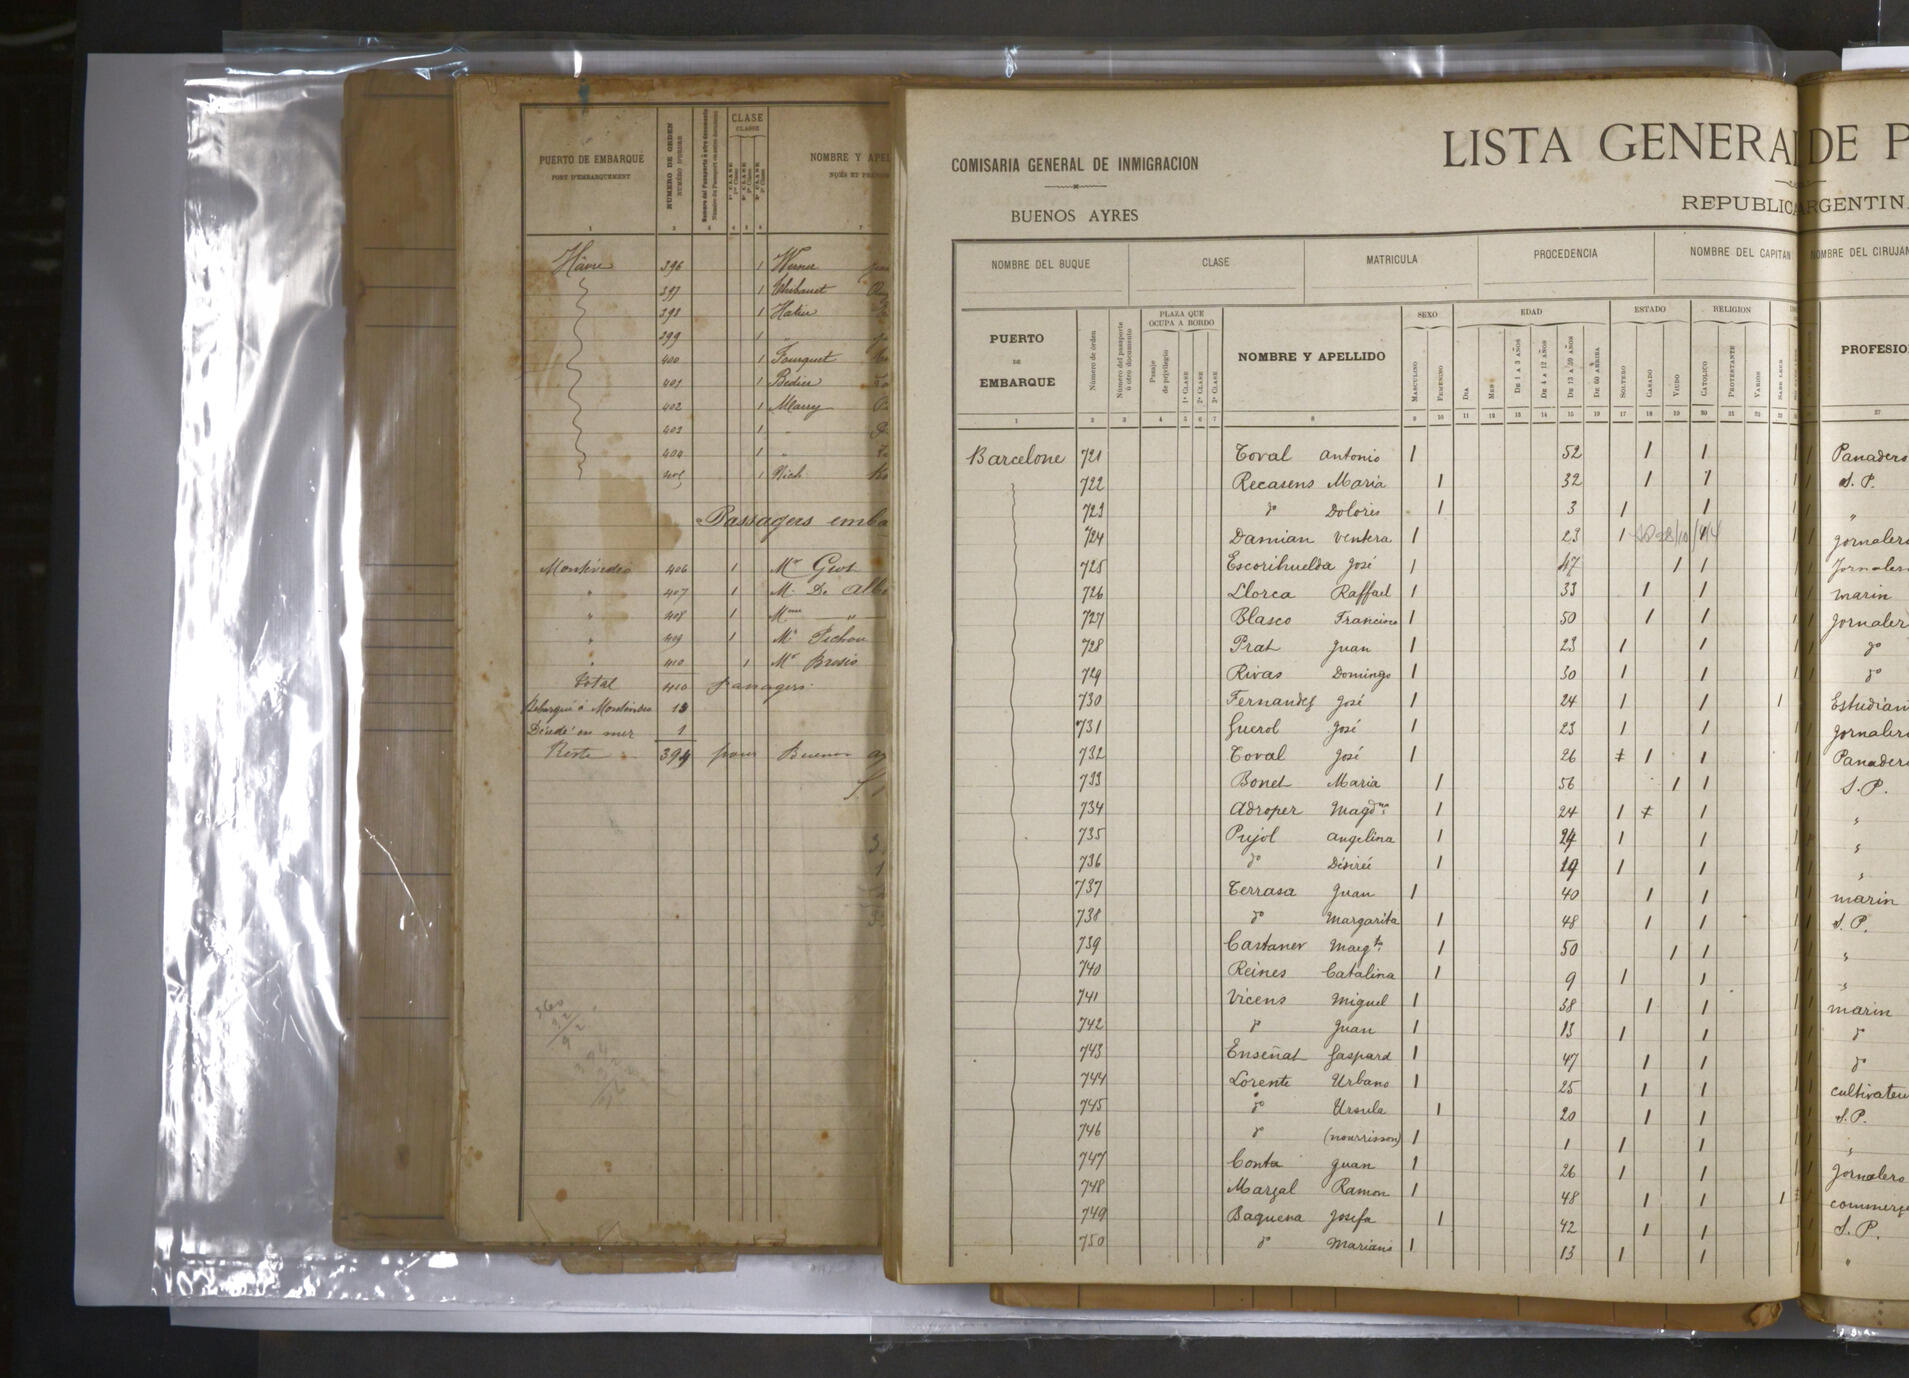 PUERTO DE EMBARQUE
PORT D'EMBARQUEMENT
NUMERO DE ORDEN
NUMÉRO D'ORDRE
CLASE
CLASSE
NOMBRE Y APEL
1 2 3 4 5 6 7
Hâvre 396 1 Werner
397 1 Thibaut
398 1 Hatier
399 1 "
400 1 Fourquet
401 1 Bedier
402 1 Marry
403 1 "
404 1 "
405 1 Rich
Passagers emba
Montévideo 406 1 Mr Geot
" 407 1 M. De Albe
" 408 1 Mme "
" 409 1 Mr Pichon
" 410 1 Mr Brosio
Total 410 passagers
Débarqué à Montévideo 15
Décédé en mer 1
Reste 394 pour Buenos
COMISARIA GENERAL DE INMIGRACION
BUENOS AYRES
LISTA GENERAL DE P
REPUBLICA ARGENTIN
NOMBRE DEL BUQUE CLASE MATRICULA PROCEDENCIA NOMBRE DEL CAPITAN NOMBRE DEL CIRUJAN
PUERTO DE EMBARQUE
Número de órden
Número del pasaporte ú otro documento
PLAZA QUE OCUPA A BORDO
Pasaje de privilegio
1ª CLASE
2ª CLASE
3ª CLASE
NOMBRE Y APELLIDO
SEXO
MASCULINO
FEMENINO
EDAD
DIA
MES
DE 1 A 3 AÑOS
DE 4 A 12 AÑOS
DE 13 A 59 AÑOS
DE 60 ARRIBA
ESTADO
SOLTERO
CASADO
VIUDO
RELIGION
CATOLICO
PROTESTANTE
VARIOS
SABE LEER
PROFESIO
1 2 3 4 5 6 7 8 9 10 11 12 13 14 15 16 17 18 19 20 21 22 23 27
Barcelone 721 Toval Antonio 1 52 1 1 1 Panadero
722 Recasens Maria 1 32 1 1 1 S. P.
723 do Dolores 1 3 1 1 1 "
724 Damian Ventura 1 23 1 1 1 Jornalero
725 Escorihuelda José 1 47 1 1 1 Jornalero
726 Llorca Raffael 1 33 1 1 1 marin
727 Blasco Francisco 1 50 1 1 1 Jornaler
728 Prat Juan 1 23 1 1 1 do
729 Rivas Domingo 1 30 1 1 1 do
730 Fernandez José 1 24 1 1 1 Estudian
731 Guerol José 1 23 1 1 1 Jornalero
732 Toval José 1 26 1 1 1 Panadero
733 Bonet Maria 1 56 1 1 1 S. P.
734 Adroper Magdna 1 24 1 1 1 "
735 Pujol Angelina 1 24 1 1 1 "
736 do Désireé 1 19 1 1 1 "
737 Terrasa Juan 1 40 1 1 1 marin
738 do Margarita 1 48 1 1 1 S. P.
739 Castaner Margta 1 50 1 1 1 "
740 Reines Catalina 1 9 1 1 1 "
741 Vicens Miguel 1 38 1 1 1 marin
742 do Juan 1 13 1 1 1 do
743 Enseñat Gaspard 1 47 1 1 1 do
744 Lorente Urbano 1 25 1 1 1 cultivateu
745 do Ursula 1 20 1 1 1 S. P.
746 do (nourrisson) 1 1 1 1 1 "
747 Conta Juan 1 26 1 1 1 Jornalero
748 Marzal Ramon 1 48 1 1 1 commerç
749 Baguena Josefa 1 42 1 1 1 S. P.
750 do Mariano 1 13 1 1 1 "